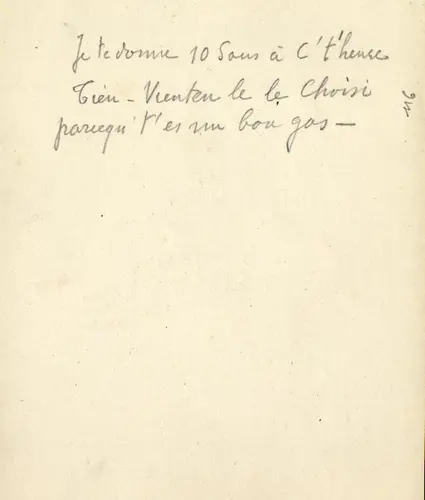 Je te donne 10 Sous à C't'heure
Tien - Vienten le le Choisi
parcequ' t'es un bon gas —